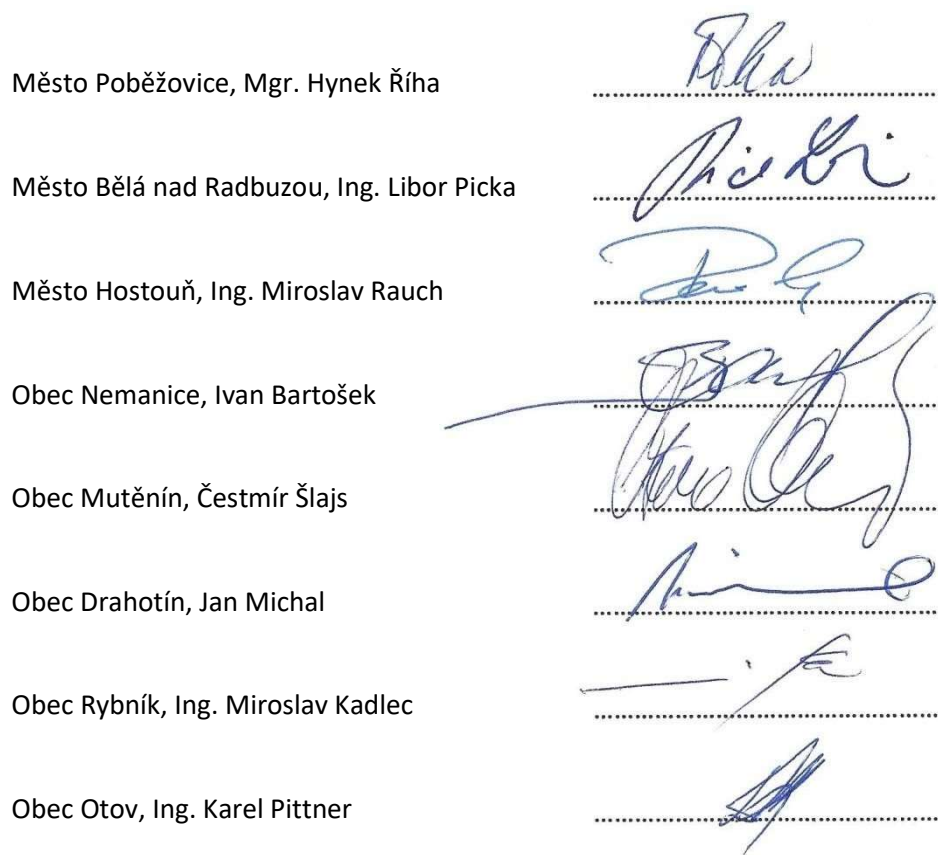 Město Poběžovice, Mgr. Hynek Říha
Město Bělá nad Radbuzou, Ing. Libor Picka
Město Hostouň, Ing. Miroslav Rauch
Obec Nemanice, Ivan Bartošek
Obec Mutěnín, Čestmír Šlajs
Obec Drahotín, Jan Michal
Obec Rybník, Ing. Miroslav Kadlec
Obec Otov, Ing. Karel Pittner